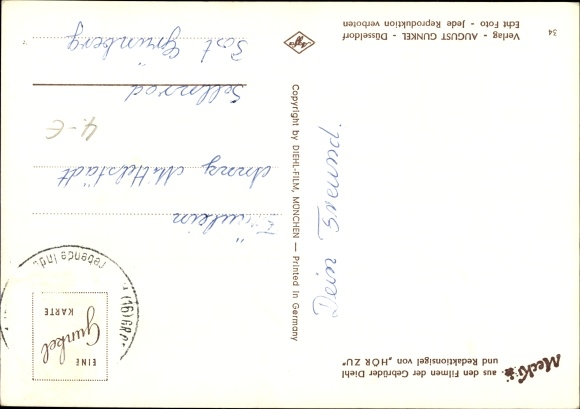 Mecki
aus den Filmen der Gebrüder Diehl
und Redaktionsigel von „HÖR ZU“
EINE
Gunkel
KARTE
Fräulein
Anny Mittelstädt
Sellnrod
Post Grünberg
4.-€
Dein Freund.
Copyright by DIEHL-FILM, MÜNCHEN — Printed in Germany
Agfa
Verlag - AUGUST GUNKEL - Düsseldorf
Echt Foto - Jede Reproduktion verboten
34
rebende Ind